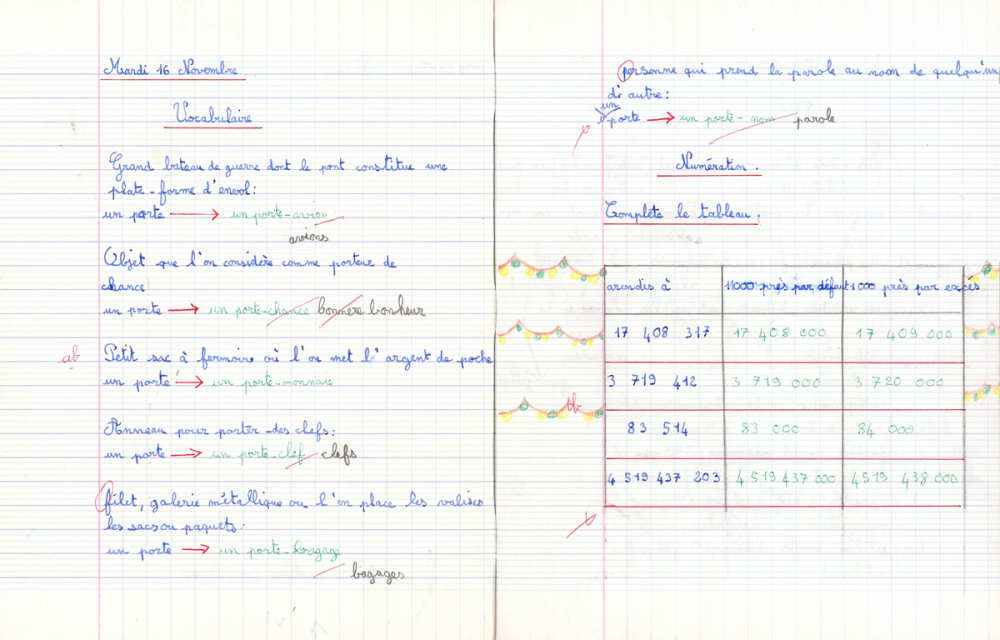 Mardi 16 Novembre
Vocabulaire
Grand bateau de guerre dont le pont constitue une
plate-forme d'envol:
un porte → un porte-avion
avions
Objet que l'on considère comme porteur de
chance
un porte → un porte-chance bonnere bonheur
ab Petit sac à fermoire où l'on met l'argent de poche
un porte → un porte-monnaie
Anneau pour porter des clefs:
un porte → un porte-clef clefs
filet, galerie métallique ou l'on place les valises
les sacs ou paquets:
un porte → un porte-bagage
bagages
personne qui prend la parole au nom de quelqu'un
d' autre:
un
porte → un porte-nom parole
Numération.
Complète le tableau:
arondis à 1000 près par défaut 1000 près par excés
17 408 317 17 408 000 17 409 000
3 719 412 3 719 000 3 720 000
tb
83 514 83 000 84 000
4 519 437 203 4 519 437 000 4 519 438 000